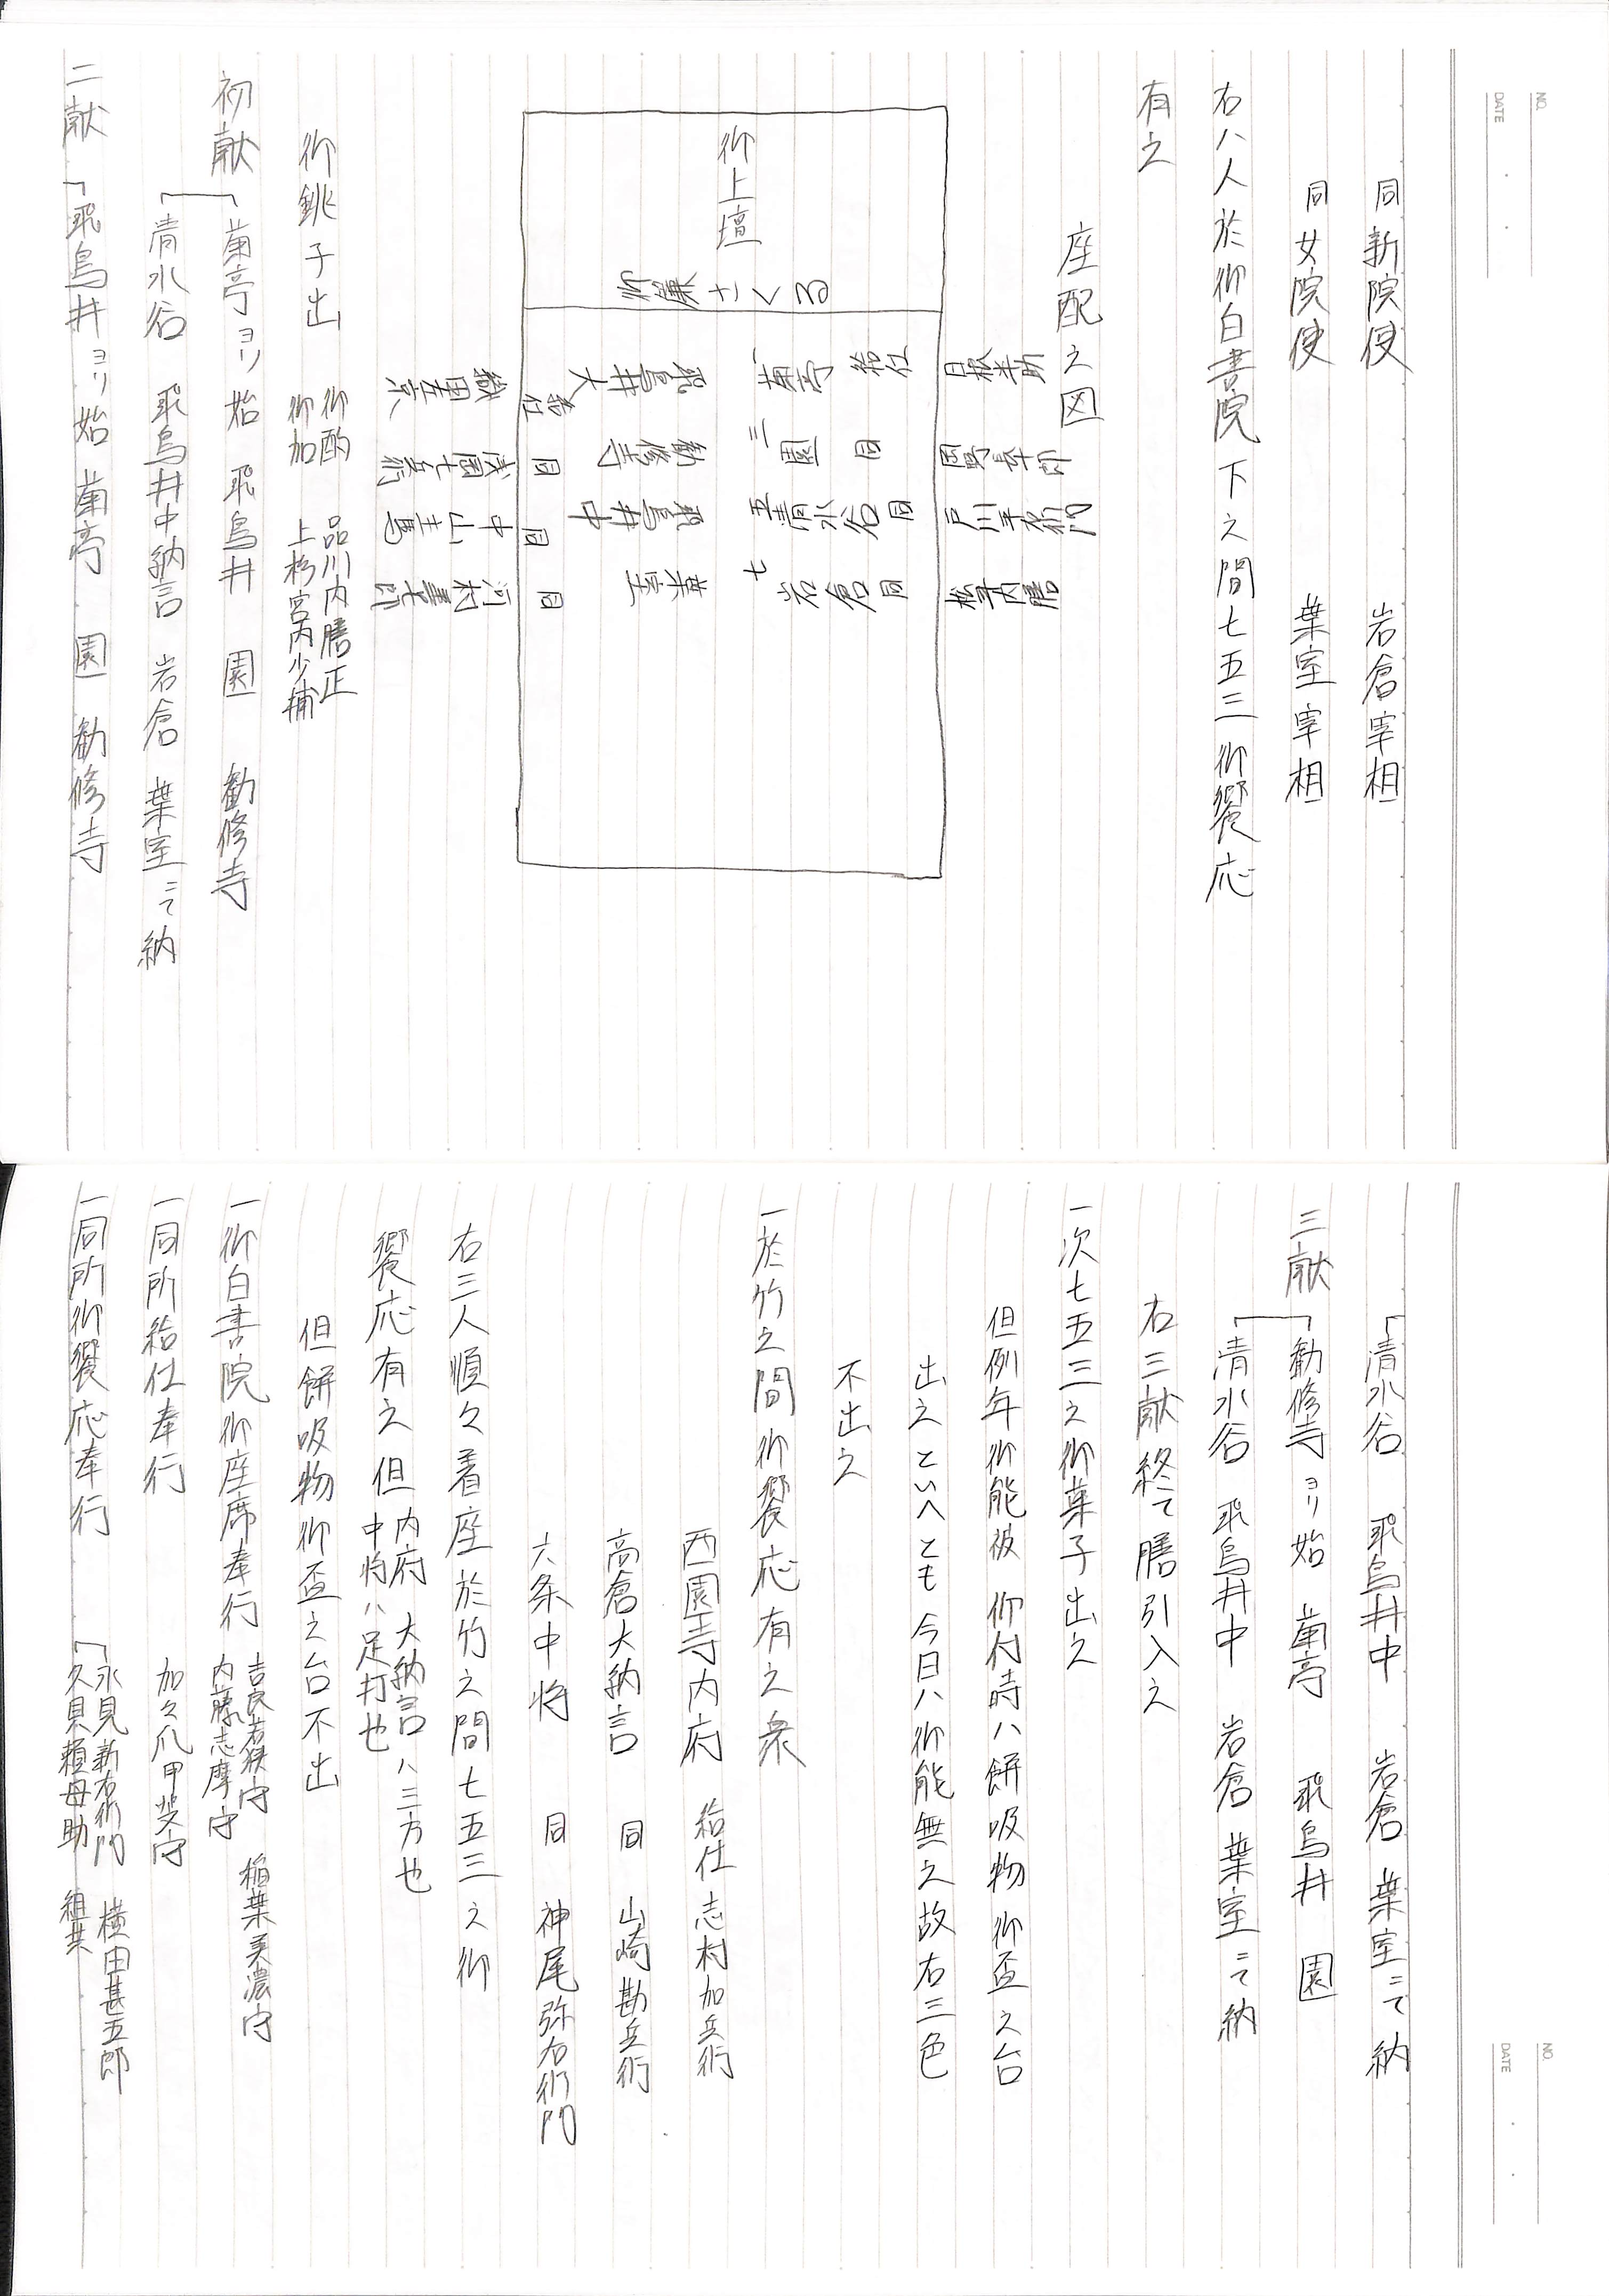 NO.
DATE
同新院使　岩倉宰相
同女院使　葉室宰相
右八人於御白書院下之間七五三御饗応
有之
座配之図
御上壇
御簾
日根半助
給仕
一菊亭
飛鳥井大
給仕
織田左京
同
三園
勧修寺
同
戸川平右衛門
同
五清水谷
飛鳥井中
同
中山主馬
松平内膳
同
七岩倉
葉室
同
御銚子出　御酌　品川内膳正
御加　上杉宮内少輔
初献　菊亭ヨリ始　飛鳥井　園　勧修寺
清水谷　飛鳥井中納言　岩倉　葉室ニて納
二献　飛鳥井ヨリ始　菊亭　園　勧修寺
NO.
DATE
清水谷　飛鳥井中　岩倉　葉室ニて納
三献　勧修寺ヨリ始　菊亭　飛鳥井　園
清水谷　飛鳥井中　岩倉　葉室ニて納
右三献終て膳引入之
一次七五三之御菓子出之
但例年御能被　仰付時ハ餅吸物御盃之台
出之といへとも今日ハ御能無之故右三色
不出之
一於竹之間御饗応有之衆
西園寺内府　給仕　志村加兵衛
高倉大納言　同　山崎勘兵衛
六条中将　同　神尾弥右衛門
右三人順々着座於竹之間七五三之御
饗応有之但内府　大納言ハ三方也
中将ハ足打也
但餅吸物御盃之台不出
一御白書院御座席奉行　吉良若狭守　稲葉美濃守
内藤志摩守
一同所給仕奉行　加々爪甲斐守
一同所御饗応奉行　永見新右衛門　横田甚五郎
久貝頼母助　組共